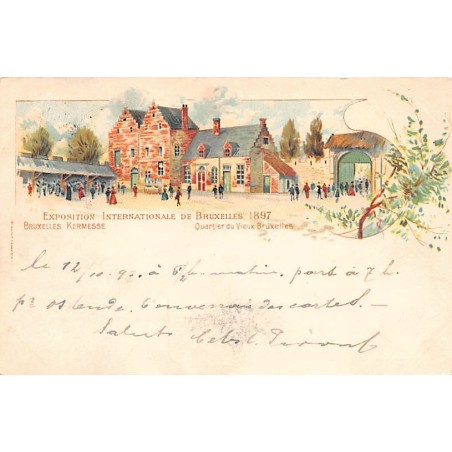 EXPOSITION INTERNATIONALE DE BRUXELLES 1897
BRUXELLES KERMESSE Quartier du Vieux Bruxelles
le 12/10 97. à matin, part à 7 h.
pr Ostende. des cartes.
Saluts